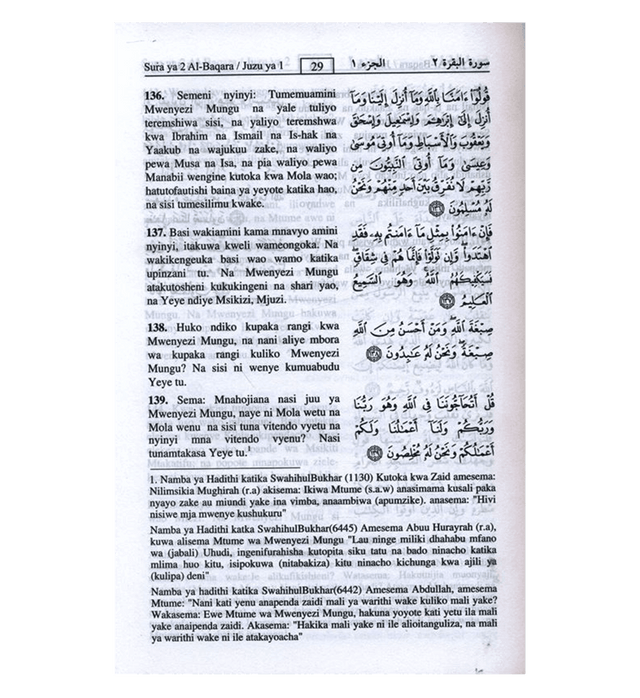 Sura ya 2 Al-Baqara / Juzu ya 1
29
الجزء ١
سورة البقرة ٢
136. Semeni nyinyi: Tumemuamini
Mwenyezi Mungu na yale tuliyo
teremshiwa sisi, na yaliyo teremshwa
kwa Ibrahim na Ismail na Is-hak na
Yaakub na wajukuu zake, na waliyo
pewa Musa na Isa, na pia waliyo pewa
Manabii wengine kutoka kwa Mola wao;
hatutofautishi baina ya yeyote katika hao,
na sisi tumesilimu kwake.
قُولُوٓا۟ ءَامَنَّا بِٱللَّهِ وَمَآ أُنزِلَ إِلَيْنَا وَمَآ
أُنزِلَ إِلَىٰٓ إِبْرَٰهِـۧمَ وَإِسْمَٰعِيلَ وَإِسْحَٰقَ
وَيَعْقُوبَ وَٱلْأَسْبَاطِ وَمَآ أُوتِىَ مُوسَىٰ
وَعِيسَىٰ وَمَآ أُوتِىَ ٱلنَّبِيُّونَ مِن
رَّبِّهِمْ لَا نُفَرِّقُ بَيْنَ أَحَدٍ مِّنْهُمْ وَنَحْنُ
لَهُۥ مُسْلِمُونَ ١٣٦
137. Basi wakiamini kama mnavyo amini
nyinyi, itakuwa kweli wameongoka. Na
wakikengeuka basi wao wamo katika
upinzani tu. Na Mwenyezi Mungu
atakutosheni kukukingeni na shari yao,
na Yeye ndiye Msikizi, Mjuzi.
فَإِنْ ءَامَنُوا۟ بِمِثْلِ مَآ ءَامَنتُم بِهِۦ فَقَدِ
ٱهْتَدَوا۟ وَّإِن تَوَلَّوْا۟ فَإِنَّمَا هُمْ فِى شِقَاقٍ
فَسَيَكْفِيكَهُمُ ٱللَّهُ وَهُوَ ٱلسَّمِيعُ
ٱلْعَلِيمُ ١٣٧
138. Huko ndiko kupaka rangi kwa
Mwenyezi Mungu, na nani aliye mbora
wa kupaka rangi kuliko Mwenyezi
Mungu? Na sisi ni wenye kumuabudu
Yeye tu.
صِبْغَةَ ٱللَّهِ وَمَنْ أَحْسَنُ مِنَ ٱللَّهِ
صِبْغَةً وَنَحْنُ لَهُۥ عَٰبِدُونَ ١٣٨
139. Sema: Mnahojiana nasi juu ya
Mwenyezi Mungu, naye ni Mola wetu na
Mola wenu na sisi tuna vitendo vyetu na
nyinyi mna vitendo vyenu? Nasi
tunamtakasa Yeye tu.¹
قُلْ أَتُحَآجُّونَنَا فِى ٱللَّهِ وَهُوَ رَبُّنَا
وَرَبُّكُمْ وَلَنَآ أَعْمَٰلُنَا وَلَكُمْ
أَعْمَٰلُكُمْ وَنَحْنُ لَهُۥ مُخْلِصُونَ ١٣٩
1. Namba ya Hadithi katika SwahihulBukhar (1130) Kutoka kwa Zaid amesema:
Nilimsikia Mughirah (r.a) akisema: Ikiwa Mtume (s.a.w) anasimama kusali paka
nyayo zake au miundi yake ina vimba, anaambiwa (apumzike). anasema: "Hivi
nisiwe mja mwenye kushukuru"
Namba ya Hadithi katka SwahihulBukhar(6445) Amesema Abuu Hurayrah (r.a),
kuwa alisema Mtume wa Mwenyezi Mungu "Lau ninge miliki dhahabu mfano
wa (jabali) Uhudi, ingenifurahisha kutopita siku tatu na bado ninacho katika
mlima huo kitu, isipokuwa (nitabakiza) kitu ninacho kichunga kwa ajili ya
(kulipa) deni"
Namba ya hadithi katika SwahihulBukhar(6442) Amesema Abdullah, amesema
Mtume: "Nani kati yenu anapenda zaidi mali ya warithi wake kuliko mali yake?
Wakasema: Ewe Mtume wa Mwenyezi Mungu, hakuna yoyote kati yetu ila mali
yake anaipenda zaidi. Akasema: "Hakika mali yake ni ile alioitanguliza, na mali
ya warithi wake ni ile atakayoacha"